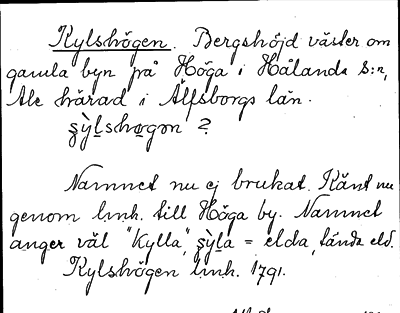 Kylshögen. Bergshöjd väster om
gamla byn på Höga i Hålanda S:n,
Ale härad i Älfsborgs län.
s̨ỳḷshøgøn ?
Namnet nu ej brukat. Känt nu
genom lmh. till Höga by. Namnet
anger väl "Kylla", s̨ỳḷa = elda, tända eld.
Kylshögen lmh. 1791.